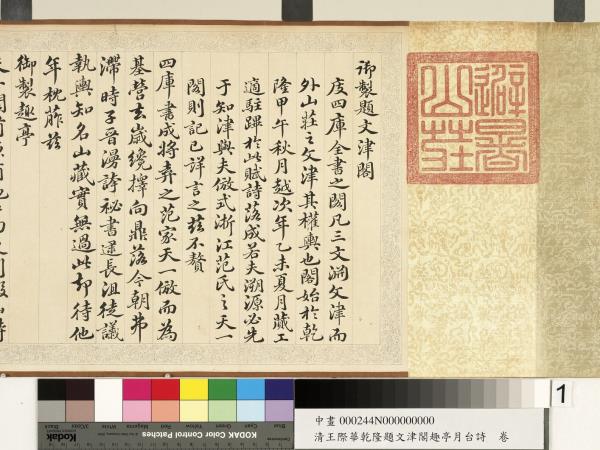 避暑
山莊
御製題文津閣
庋四庫全書之閣凡三文淵文津而
外山莊之文津其權輿也閣始於乾
隆甲午秋月越次年乙未夏月蕆工
適駐蹕於此賦詩落成若夫溯源必先
于知津與夫倣式浙江范氏之天一
閣則記已詳言之茲不贅
四庫書成將弆之范家天一倣而為
基營去歲纔擇向鼎落今朝弗
滯時子晉漫誇祕書逮長沮徒議
執輿知名山藏實無過此却待他
年枕葄茲
御製趣亭
Blue Cyan Green Yellow Red Magenta White 3/Color Black
Kodak KODAK Color Control Patches
1
中畫 000244N000000000
清王際華乾隆題文津閣趣亭月台詩 卷